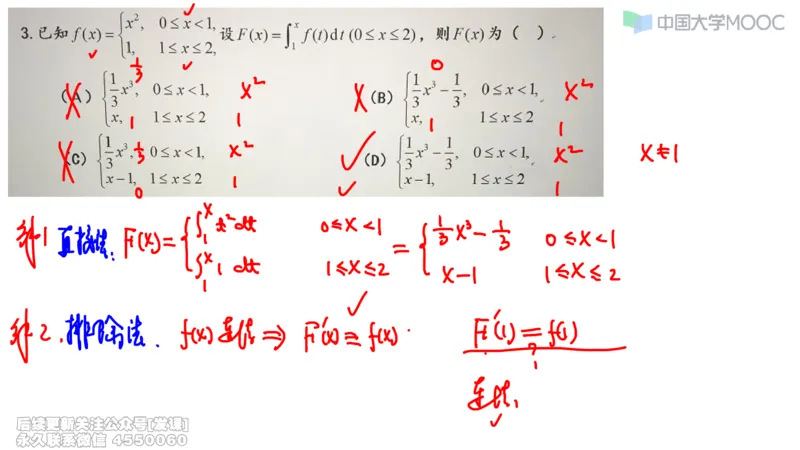 中国大学MOOC
3.已知 f(x)={x², 0≤x<1, 1, 1≤x≤2, 设F(x)=∫₁ˣ f(t)dt (0≤x≤2)，则F(x)为（ ）.
(A) {1/3 x³, 0≤x<1, x, 1≤x≤2
1/3 1 x² 1
(B) {1/3 x³-1/3, 0≤x<1, x, 1≤x≤2
0 1 x² 1
(C) {1/3 x³, 0≤x<1, x-1, 1≤x≤2
1/3 0 x² 1
(D) {1/3 x³-1/3, 0≤x<1, x-1, 1≤x≤2
x² 1
解1 直接法. F(x)={∫₁ˣ t²dt 0≤x<1 ∫₁ˣ 1 dt 1≤x≤2 ={1/3 x³-1/3 0≤x<1 x-1 1≤x≤2
解2. 排除法. f(x)连续⇒F'(x)=f(x). F'(1)=f(1)
?
连续,
后续更新关注公众号[发课]
永久联系微信 4550060